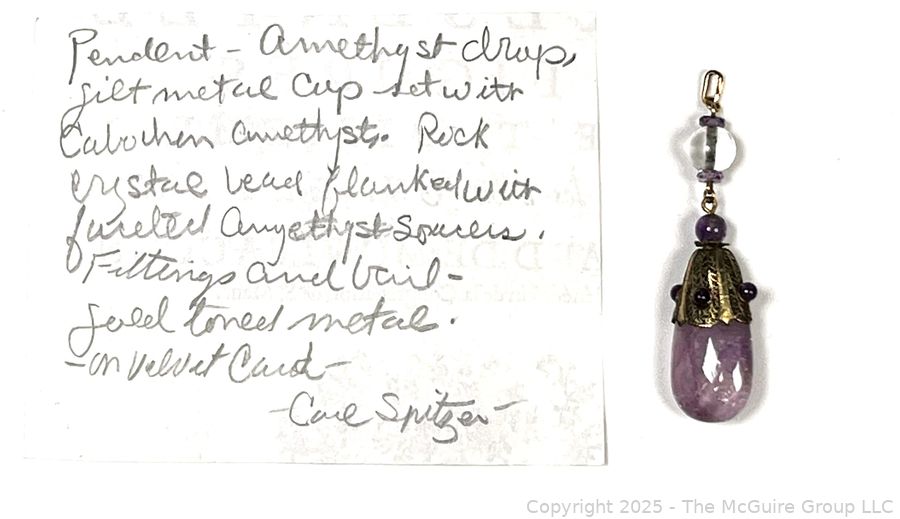 Pendent - Amethyst drop,
gilt metal Cap set with
Cabochon amethysts. Rock
crystal bead flanked with
faceted Amyethyst Spacers.
Fittings and bail -
gold toned metal.
- on velvet Card -
- Care Spitzer -
Copyright 2025 - The McGuire Group LLC